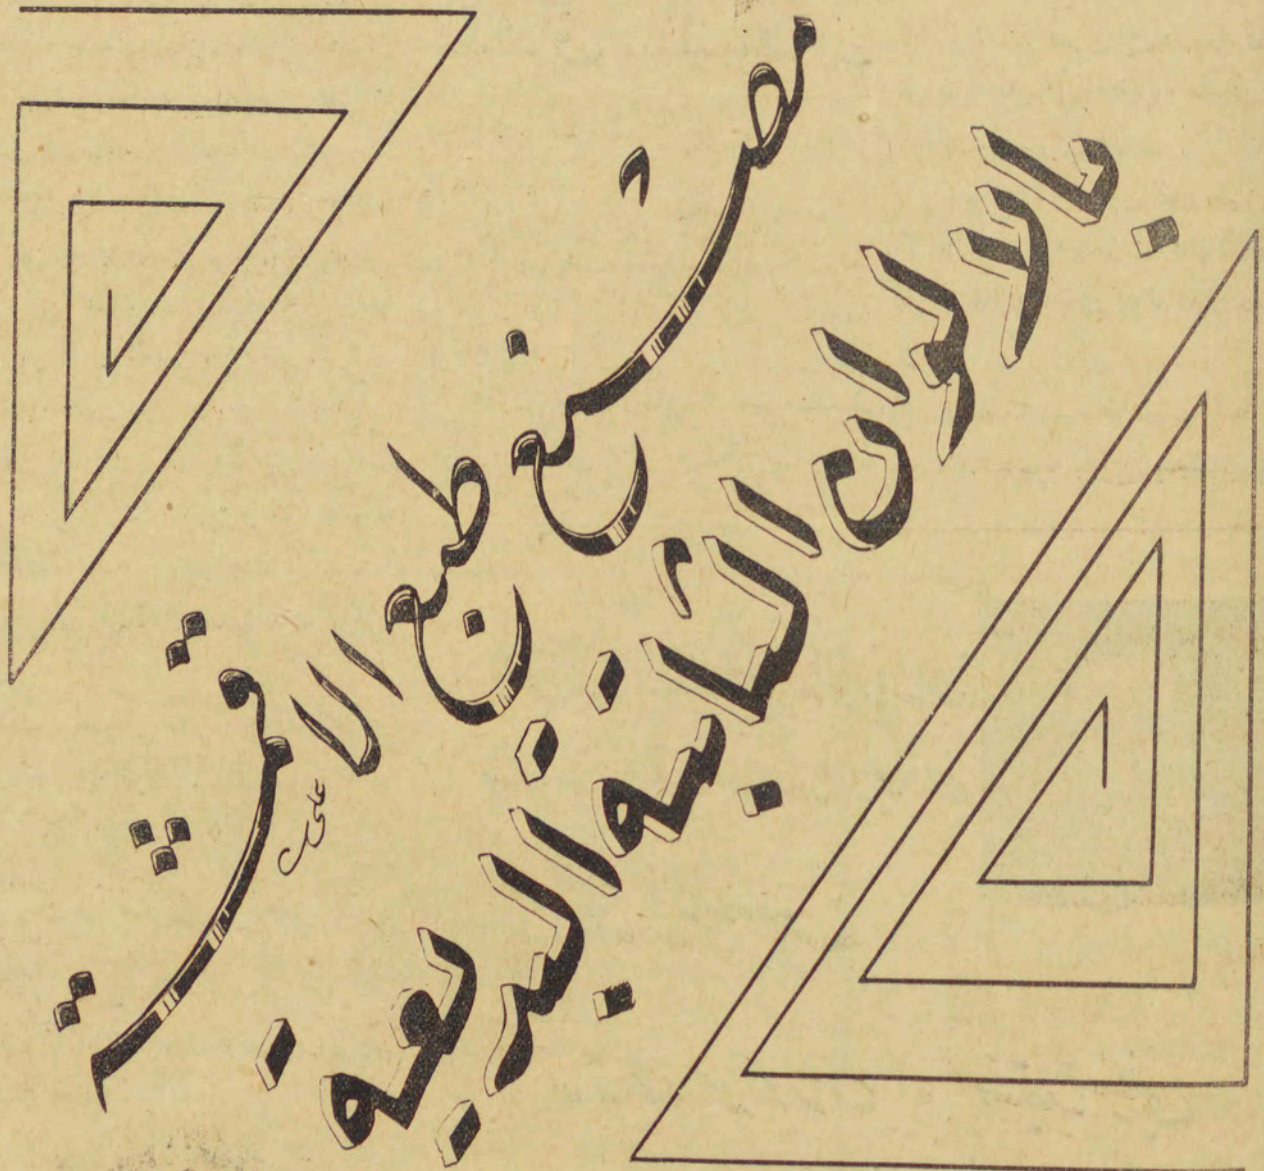 مصنع طبع الاقمشة
بالالوان الثابتة البديعة
علي